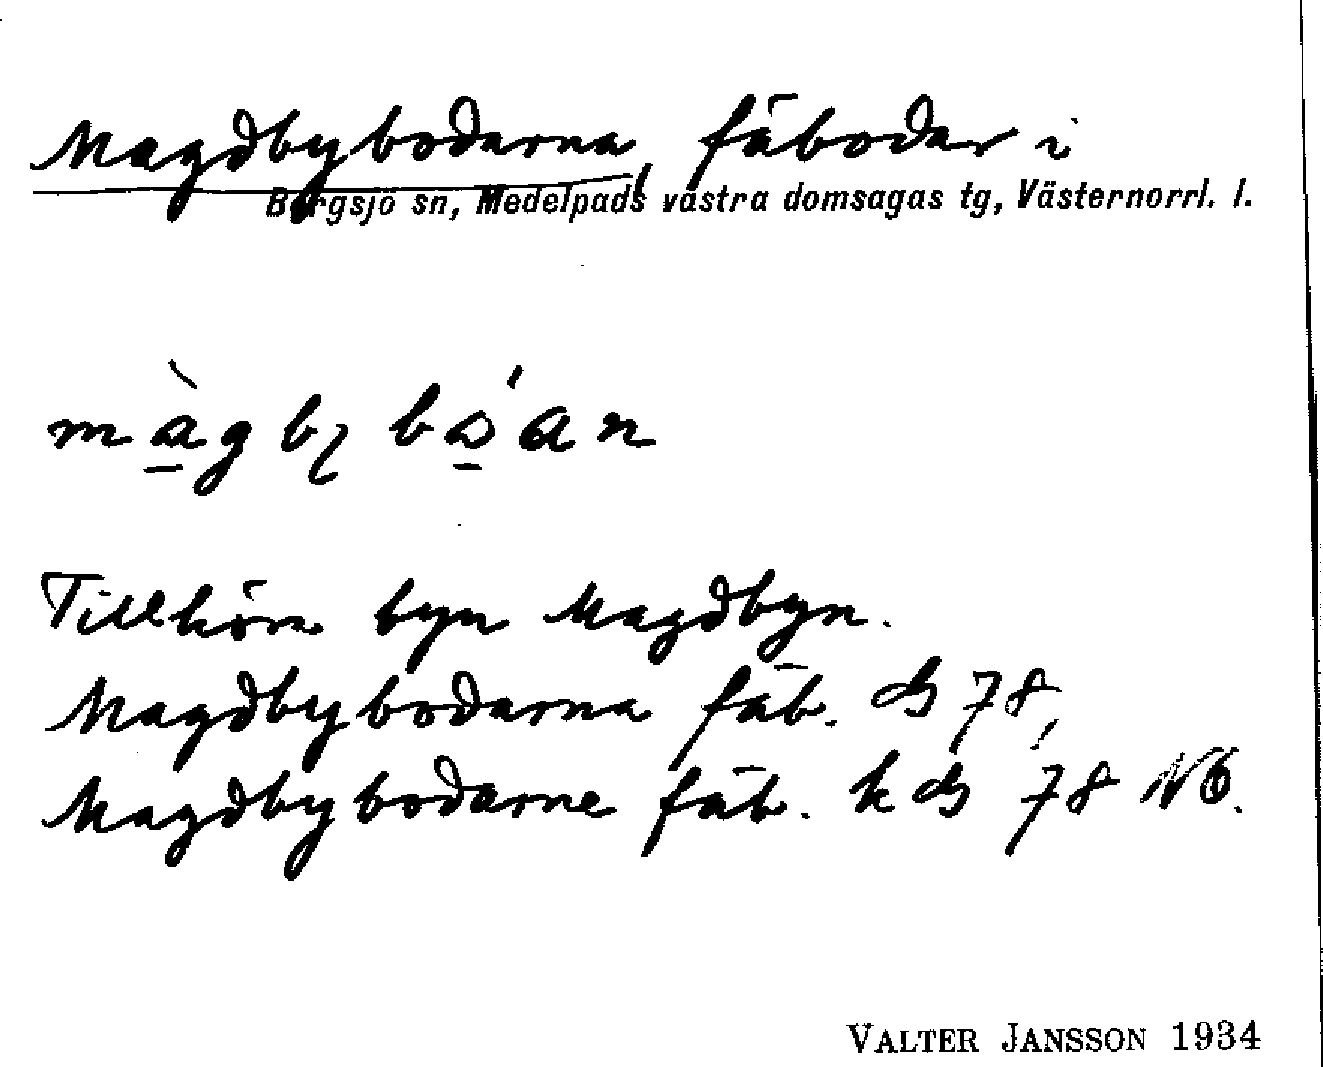 Magdbybodarna, fäbodar i
Borgsjö sn, Medelpads västra domsagas tg, Västernorrl. l.
Tillhöra byn Magdbyn.
Magdbybodarna fäb. GS 78,
Magdbybodarne fäb. k GS 78 NO.
VALTER JANSSON 1934